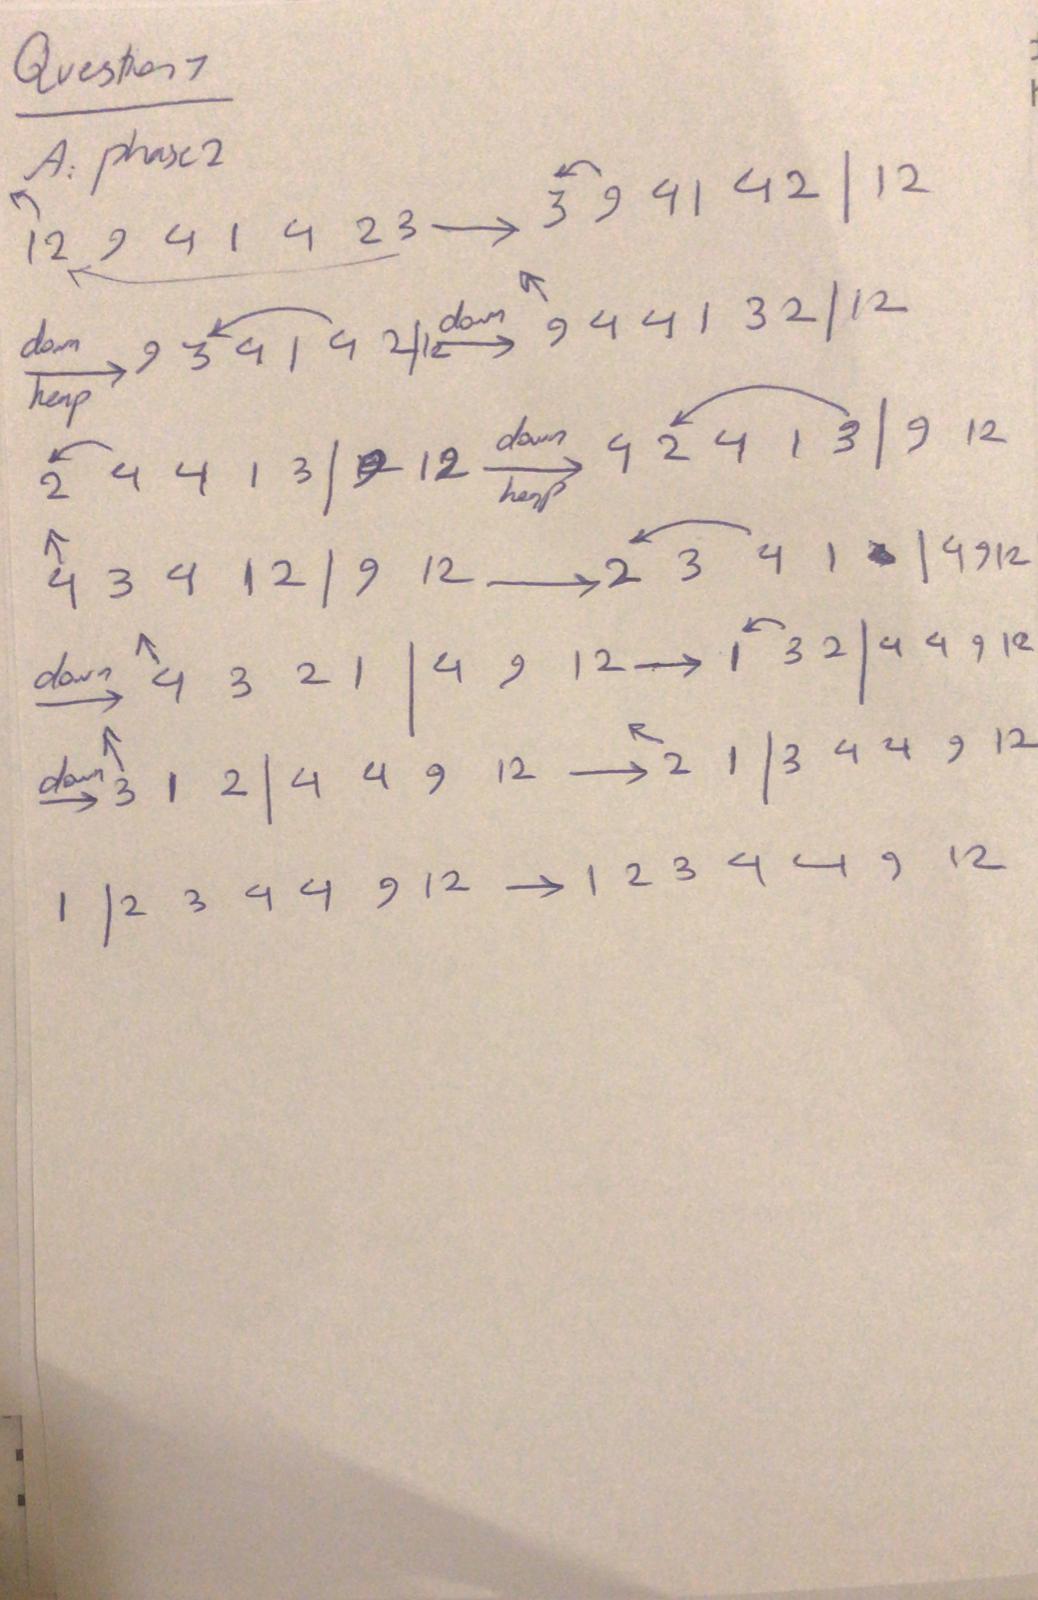 Question 7
A: phase 2
12 9 4 1 4 2 3 → 3 9 4 1 4 2 | 12
down heap → 9 3 4 1 4 2 | 12 down → 9 4 4 1 3 2 | 12
2 4 4 1 3 | 9 12 down heap → 4 2 4 1 3 | 9 12
4 3 4 1 2 | 9 12 → 2 3 4 1 | 4 9 12
down → 4 3 2 1 | 4 9 12 → 1 3 2 | 4 4 9 12
down → 3 1 2 | 4 4 9 12 → 2 1 | 3 4 4 9 12
1 | 2 3 4 4 9 12 → 1 2 3 4 4 9 12